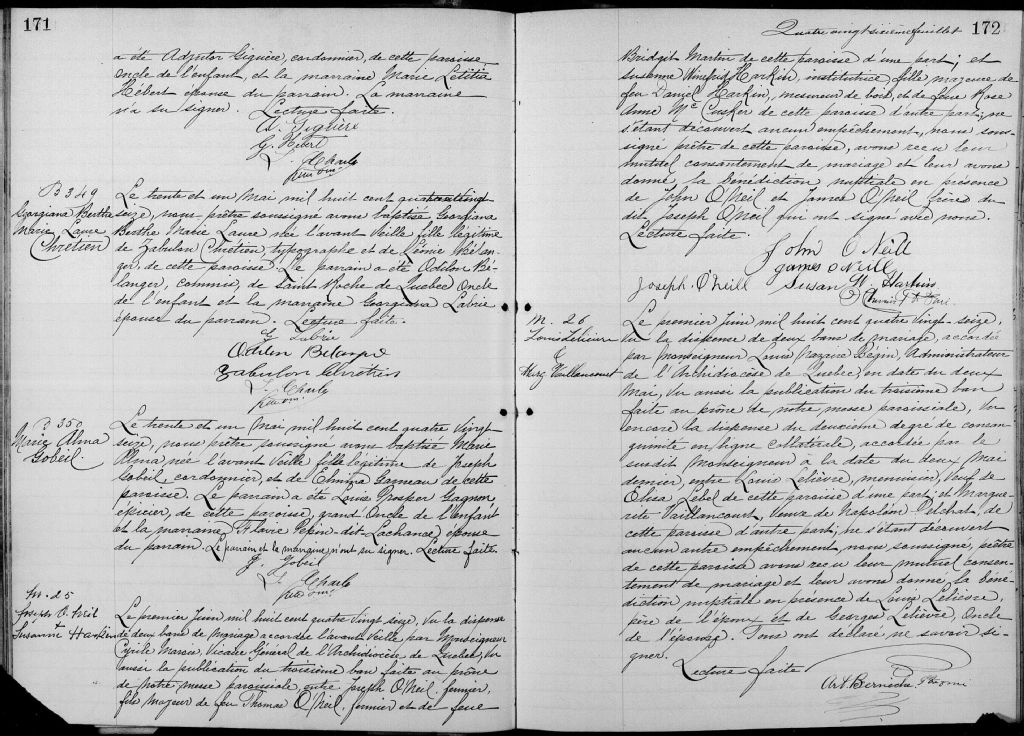 171
a été Adjutor Giguère, cordonnier, de cette paroisse
oncle de l'enfant, et la marraine Marie Letitia
Hébert épouse du parrain. La marraine
n'a su signer. Lecture faite.
A. Giguère
G. Hébert
B 349
Georgiana Bertha
Marie Laure
Chrétien
Le trente et un Mai mil huit cent quatre vingt
seize, nous prêtre soussigné avons baptisé Georgiana
Berthe Marie Laure née l'avant veille fille légitime
de Zabulon Chrétien, typographe et de Léonie Bélan-
ger, de cette paroisse. Le parrain a été Odilon Bé-
langer, commis, de Saint Roche de Québec Oncle
de l'enfant et la marraine Georgiana Labrie
épouse du parrain. Lecture faite.
G Labrie
Odilon Belanger
Zabulon Chrétien
B 350
Marie Alma
Gobeil.
Le trente et un Mai mil huit cent quatre vingt
seize, nous prêtre soussigné avons baptisé Marie
Alma née l'avant veille fille légitime de Joseph
Gobeil, cordonnier, et de Elmina Garneau de cette
paroisse. Le parrain a été Louis Prosper Gagnon,
épicier, de cette paroisse, grand Oncle de l'enfant
et la marraine Flavie Pepin dit Lachance, épouse
du parrain. Le parrain et la marraine n'ont su signer. Lecture faite.
J. Gobeil
M. 25
Joseph O'Neil
+
Susanne Harkin
Le premier Juin mil huit cent quatre vingt seize, Vu la dispense
de deux bans de mariage accordée l'avant veille par Monseigneur
Cyrille Marois, Vicaire Général de l'Archidiocèse de Québec, Vu
aussi la publication du troisième ban faite au prône
de notre messe paroissiale, entre Joseph O'Neil, fermier,
fils majeur de feu Thomas O'Neil, fermier et de feue
Quatre vingt sixième feuillet
172
Bridgit Martin de cette paroisse d'une part; et
Susanne Winefrid Harkin, institutrice, fille majeure de
feu Daniel Harkin, mesureur de bois, et de feue Rose
Anne Mc Cusker de cette paroisse d'autre part; ne
s'étant découvert aucun empêchement, nous sous-
signé prêtre de cette paroisse, avons reçu leur
mutuel consentement de mariage et leur avons
donné la bénédiction nuptiale en présence
de John O'Neil et James O'Neil frères du
dit Joseph O'Neil qui ont signé avec nous.
Lecture faite.
John O'Neill
James O'Neill
Joseph O'Neill Susan W. Harkin
M. 26
Louis Lelièvre
&
Marg Vaillancourt
Le premier Juin mil huit cent quatre vingt-seize,
Vu la dispense de deux bans de mariage, accordée
par Monseigneur Louis Nazaire Bégin, Administrateur
de l'Archidiocèse de Québec, en date du deux
Mai, Vu aussi la publication du troisième ban
faite au prône de notre messe paroissiale, Vu
encore la dispense du deuxième degré de consan-
guinité en ligne collatérale, accordée par le
susdit Monseigneur à la date du deux Mai
dernier, entre Louis Lelièvre, menuisier, Veuf de
Elisa Lebel de cette paroisse d'une part; et Margue-
rite Vaillancourt, Veuve de Napoléon Pelchat, de
cette paroisse d'autre part; ne s'étant découvert
aucun autre empêchement, nous soussigné, prêtre
de cette paroisse avons reçu leur mutuel consen-
tement de mariage et leur avons donné la béné-
diction nuptiale en présence de Louis Lelièvre,
père de l'époux et de Georges Lelièvre, Oncle
de l'épouse. Tous ont déclaré ne savoir si-
gner.
Lecture faite